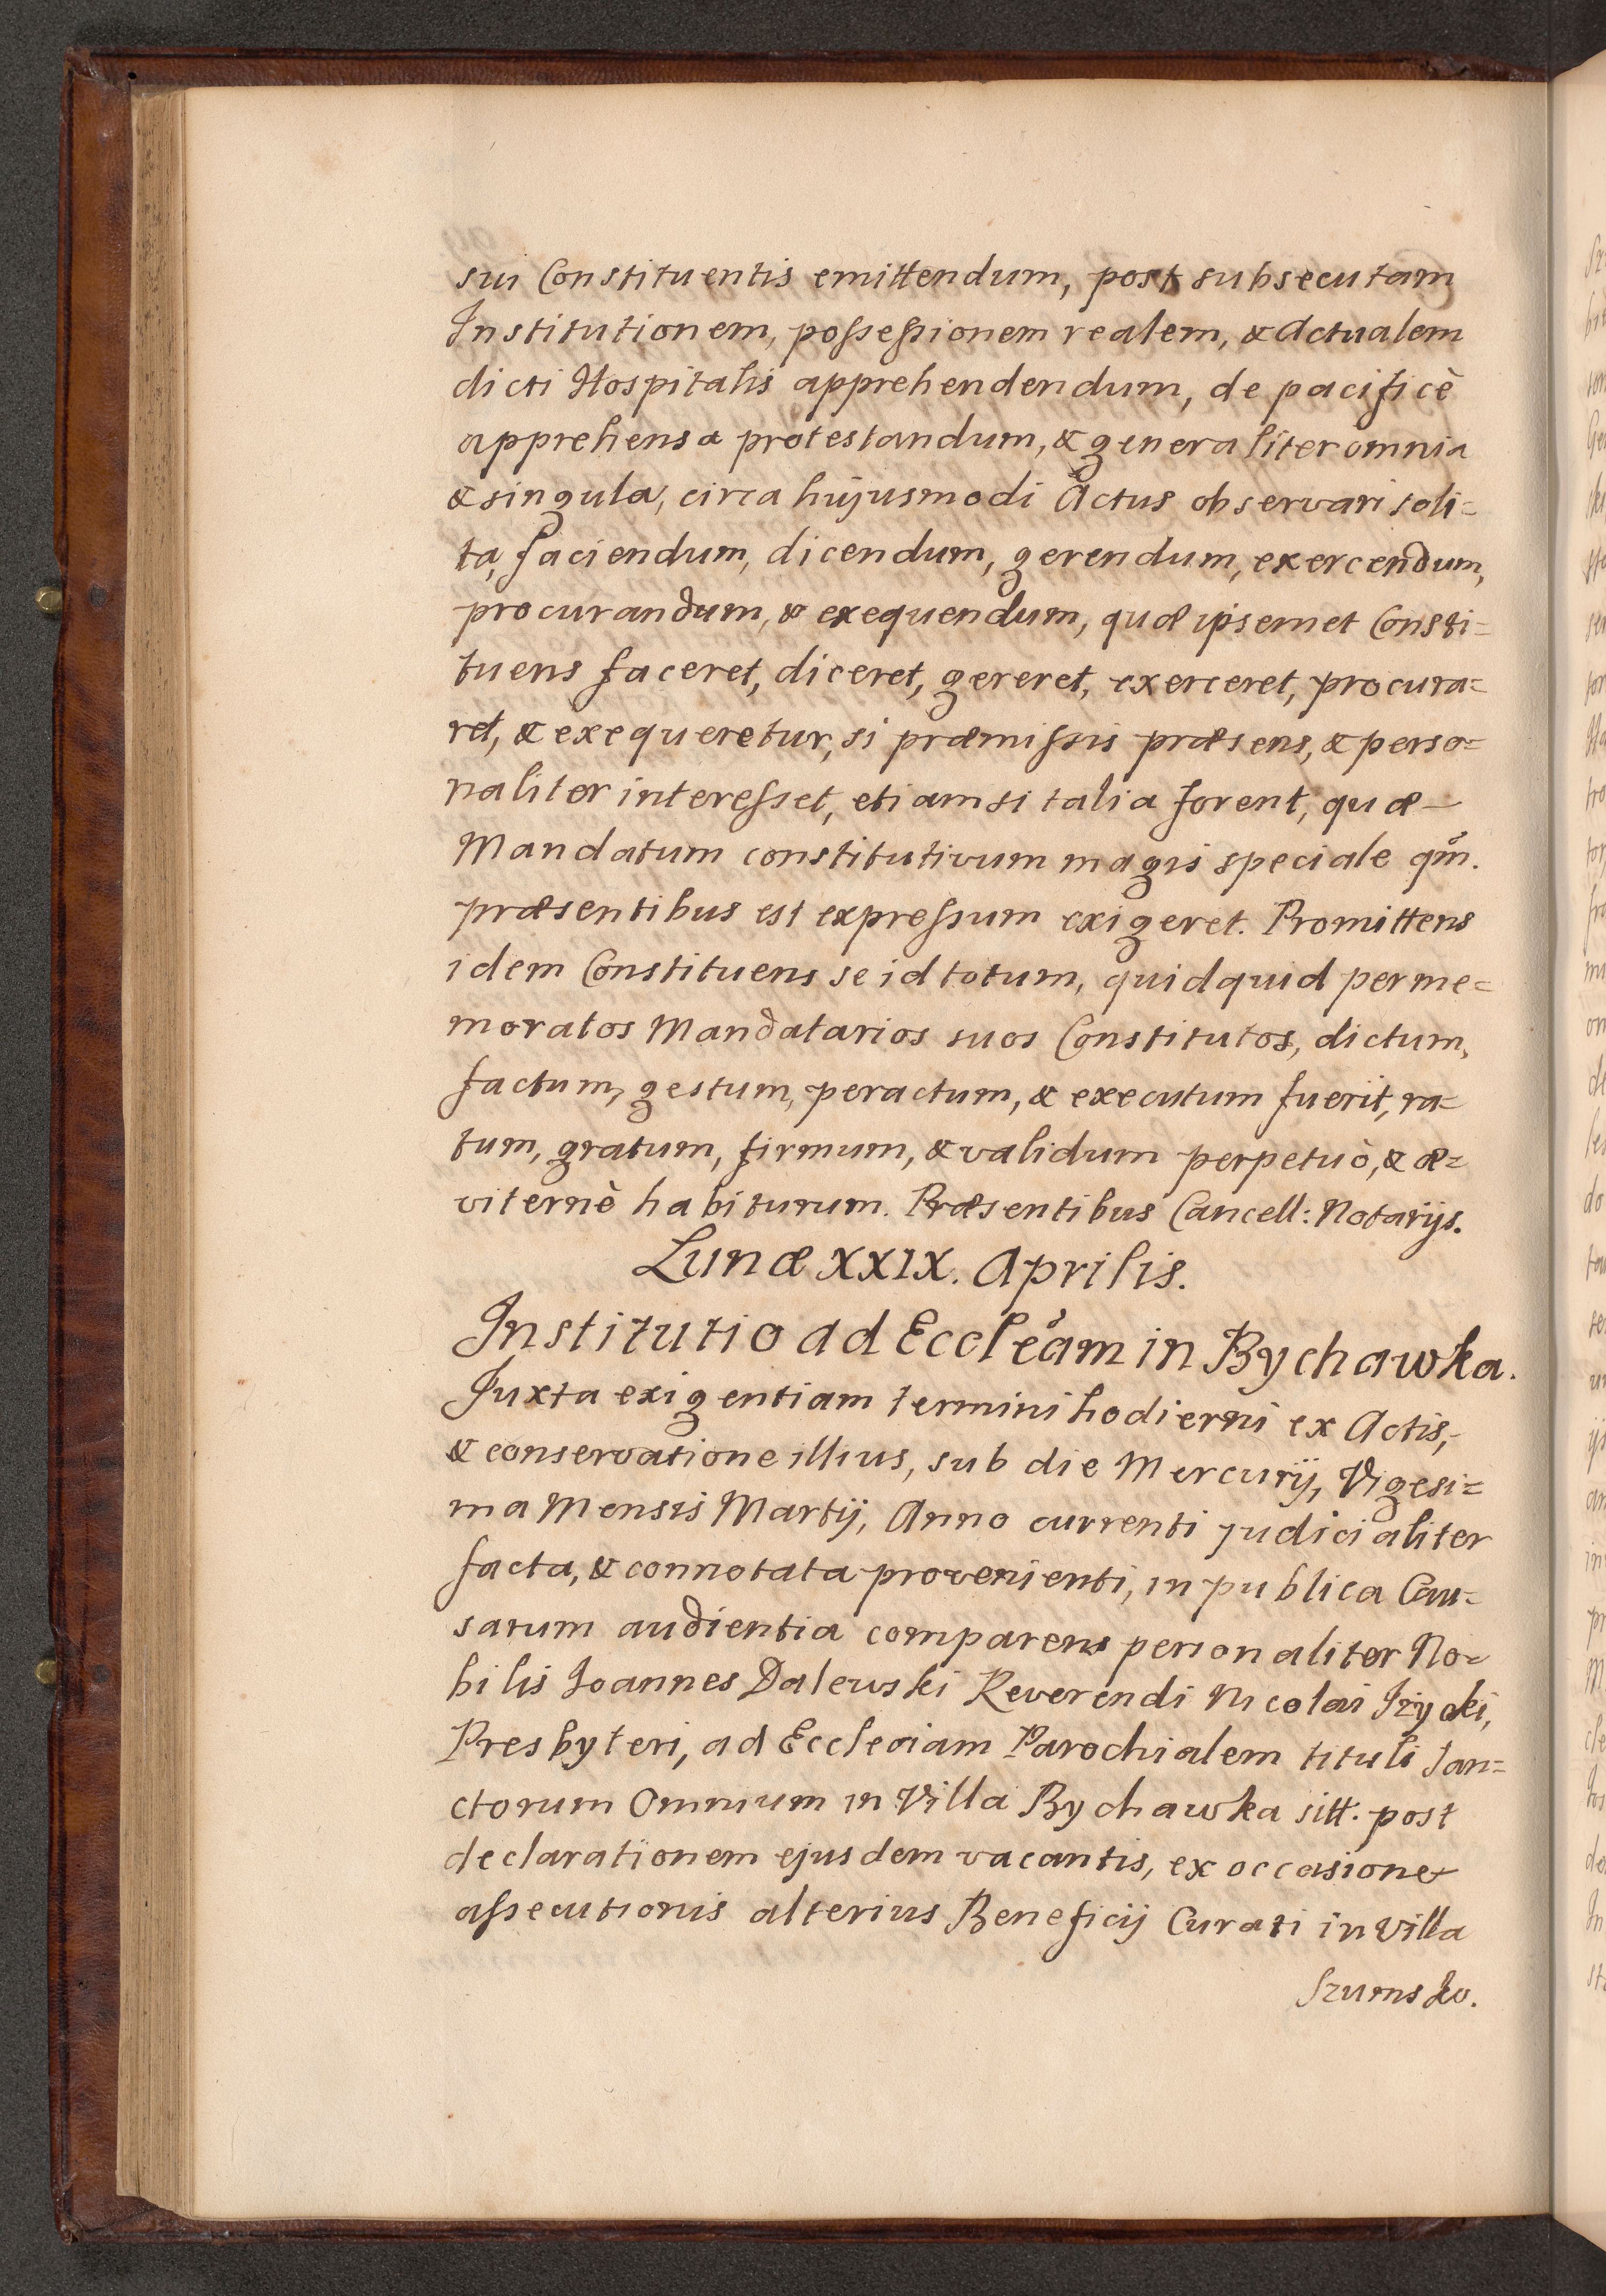 sui Constituentis emittendum, post subsecutam
Institutionem, possessionem realem, & Actualem
dicti Hospitalis apprehendendum, de pacificè
apprehensa protestandum, & generaliter omnia
& singula, circa hujusmodi Actus observari soli=
ta, faciendum, dicendum, gerendum, exercendum,
procurandum, & exequendum, quæ ipsemet Consti=
tuens faceret, diceret, gereret, exerceret, procura=
ret, & exequeretur, si præmissis præsens, & perso=
naliter interesset, etiamsi talia forent, quæ
Mandatum constitutivum magis speciale qm̃.
præsentibus est expressum exigeret. Promittens
idem Constituens se id totum, quidquid per me=
moratos Mandatarios suos Constitutos, dictum,
factum, gestum, peractum, & executum fuerit, ra=
tum, gratum, firmum, & validum perpetuò, & æ=
viternè habiturum. Præsentibus Cancell: Notarijs.
Lunæ XXIX. Aprilis.
Institutio ad Eccleãm in Bychawka.
Juxta exigentiam termini hodierni ex Actis,
& conservatione illius, sub die Mercurij, Vigesi=
ma Mensis Martij, Anno currenti judicialiter
facta, & connotata provenienti, in publica Cau=
sarum audientia comparens personaliter No=
bilis Joannes Dalewski Reverendi Nicolai Iżycki,
Presbyteri, ad Ecclesiam Parochialem tituli San=
ctorum Omnium in Villa Bychawka sitt. post
declarationem ejusdem vacantis, ex occasione
assecutionis alterius Beneficij Curati in Villa
Szumsko.